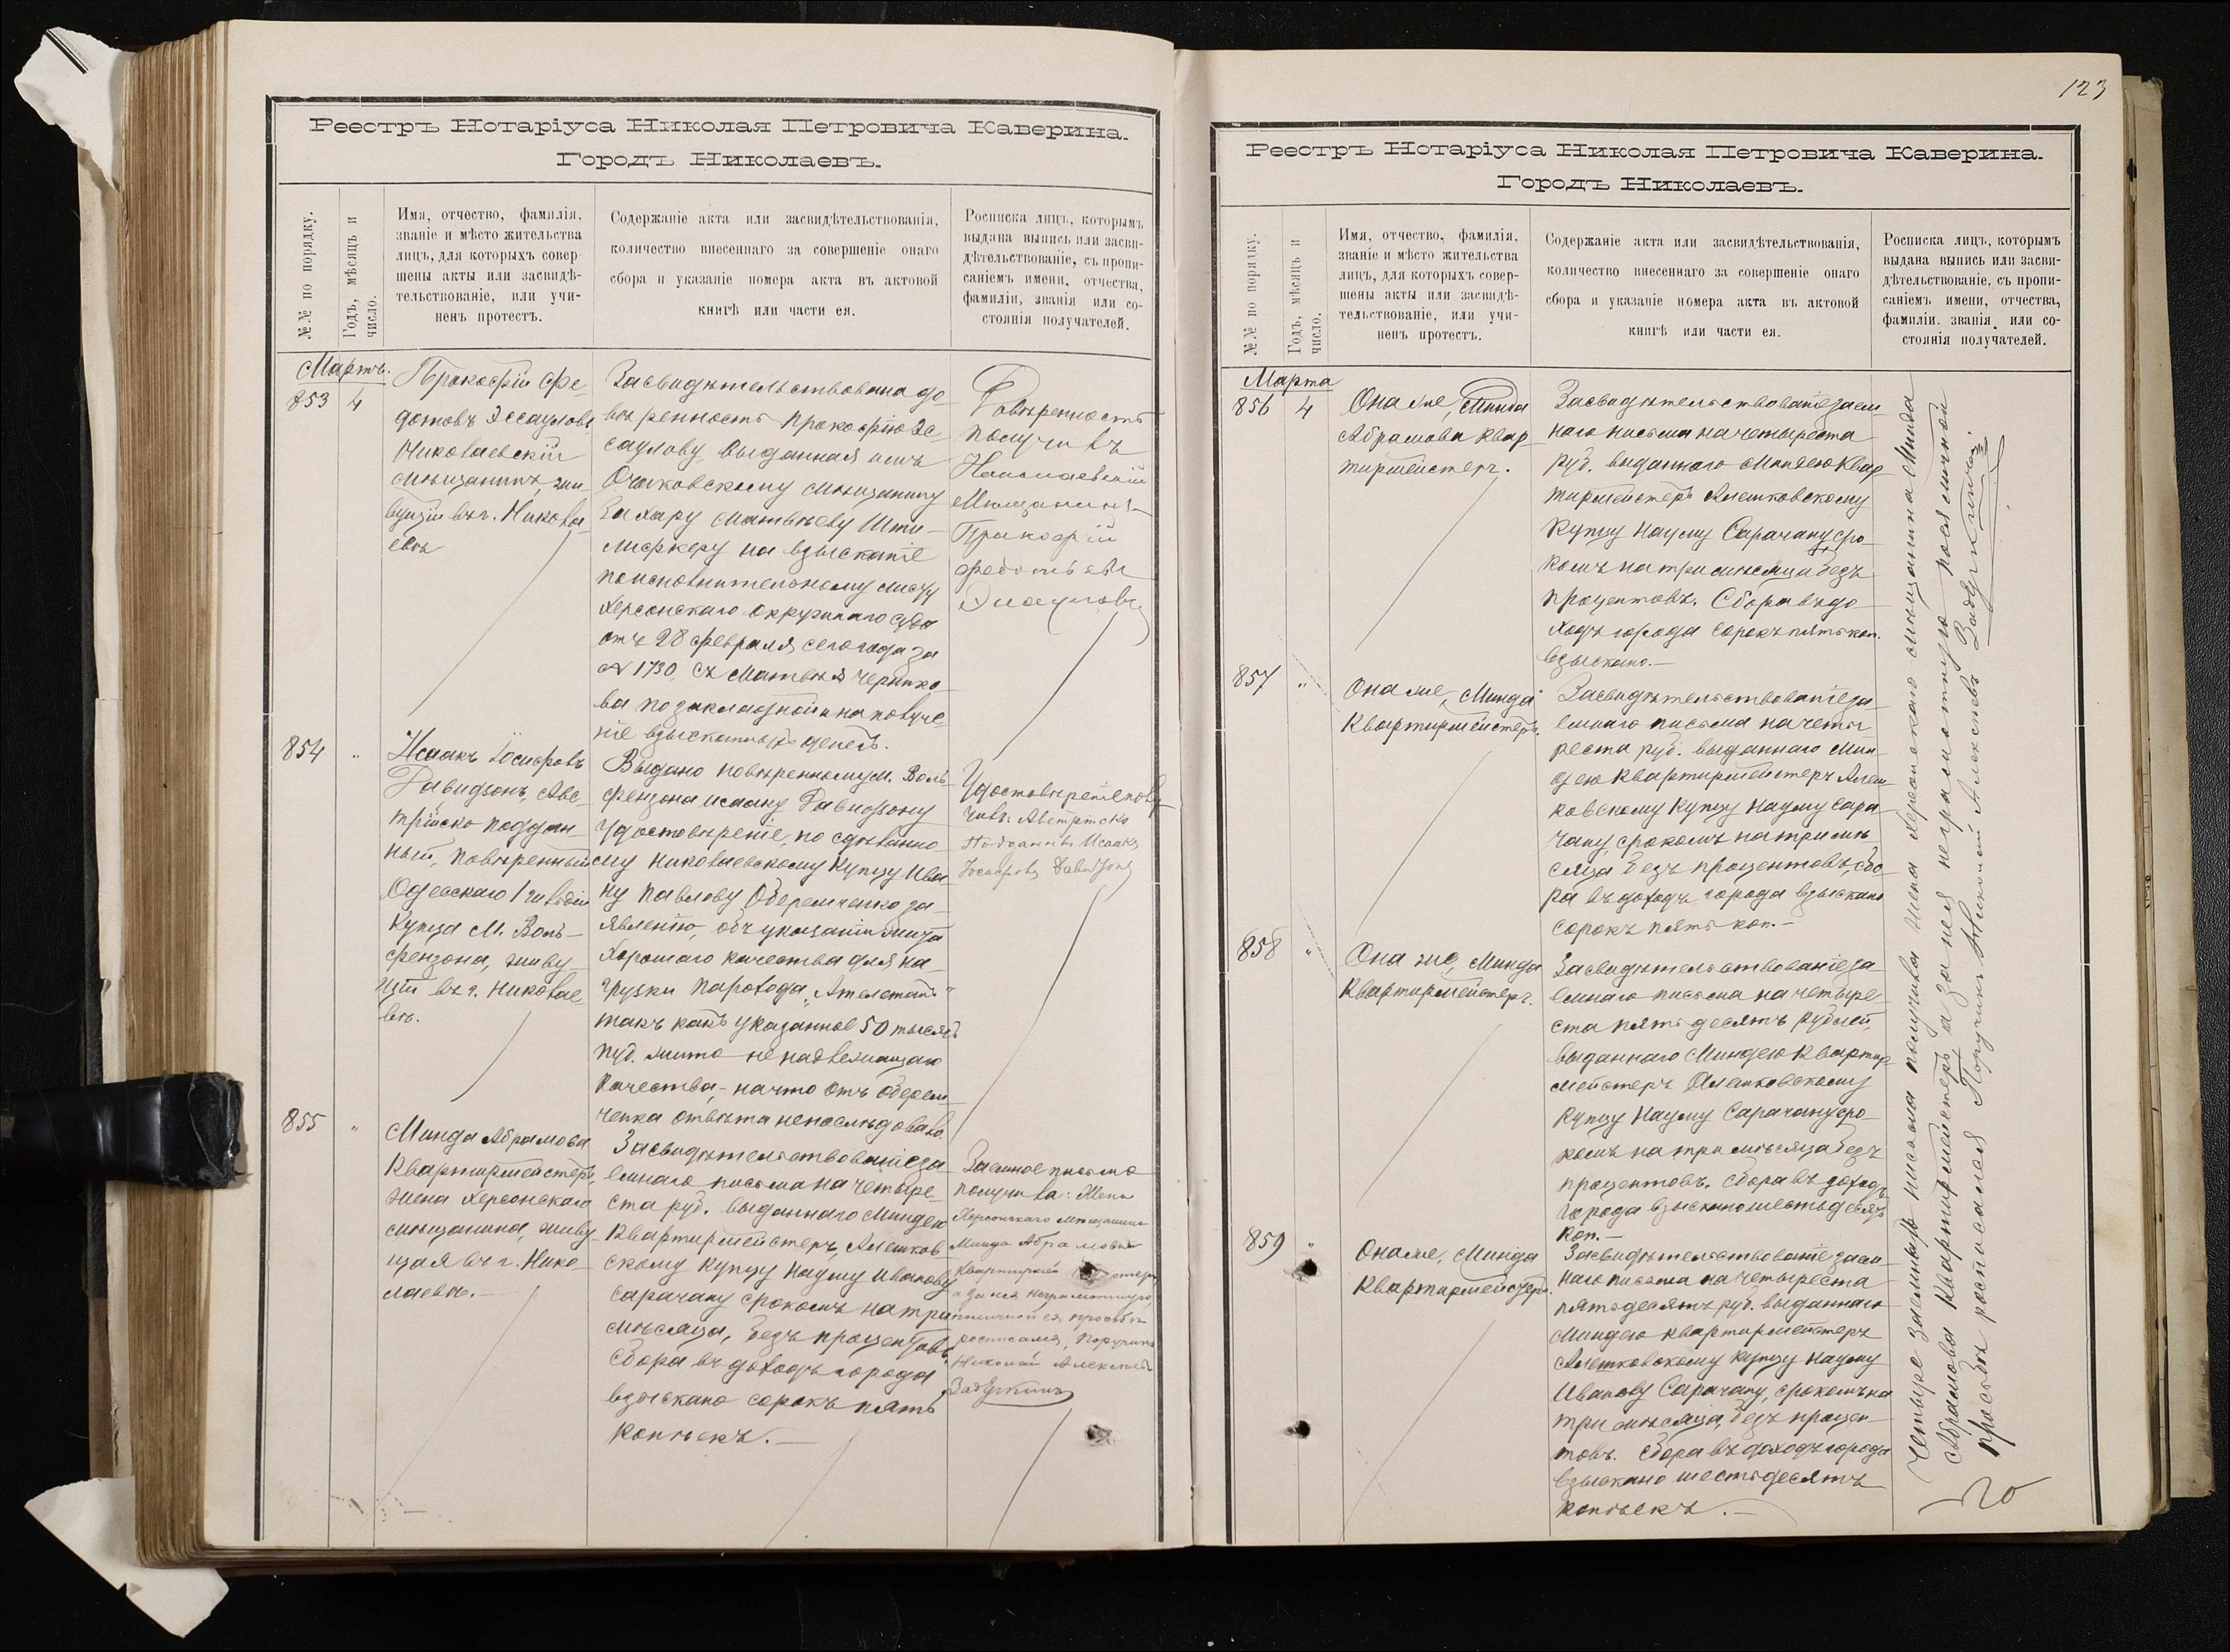 Реестръ Нотаріуса Николая Петровича Каверина.
Городъ Николаевъ.
№№ по порядку.
Годъ, мѣсяцъ и
число.
Имя, отчество, фамилія,
званіе и мѣсто жительства
лицъ, для которыхъ совер-
шены акты или засвидѣ-
тельствованіе, или учи-
ненъ протестъ.
Содержаніе акта или засвидѣтельствованія,
количество внесеннаго за совершеніе онаго
сбора и указаніе номера акта въ актовой
книгѣ или части ея.
Росписка лицъ, которымъ
выдана выпись или засви-
дѣтельствованіе, съ пропи-
саніемъ имени, отчества,
фамиліи, званія или со-
стоянія получателей.
Мартъ.
853
4
Прокофій Фе-
дотовъ Эссауловъ
Николаевскій
мѣщанинъ, жи-
вущій въ г. Никола-
евѣ
Засвидѣтельствована до-
вѣренность Прокофію Эс-
саулову выданная имъ
Очаковскому мѣщанину
Захару Матвѣеву Шти-
лифкеру на взысканіе
по исполнительному листу
Херсонскаго Окружнаго Суда
отъ 28 февраля сего года за
№ 1730, съ Матвѣя
ва по закладной и на получе-
ніе взысканныхъ денегъ.
Довѣренность
получилъ
Николаевскій
Мѣщанинъ
Прокофій
Федотьевъ
Эсауловъ
854
"
Исаакъ Іосифовъ
Давидзонъ, Авс-
трійско поддан-
ный, повѣренный
Одесскаго 1 гильдіи
Купца М. Воль-
фензона, живу-
щій въ г. Николае-
вѣ.
Выдано повѣренному М. Воль-
фензона Исааку Давидзону
удостовѣреніе, по сдѣланно-
му Николаевскому Купцу Ива-
ну Павлову Оберемченко за-
явленію, объ указаніи жита
хорошаго качества для на-
грузки парохода "Ательстанъ"
такъ какъ указанное 50 тысячъ
пуд. жито не надлежащаго
качества, - на что отъ Оберем-
ченка отвѣта непослѣдовало.
Удостовѣреніе полу-
чилъ: Австрійско
Подданный Исаакъ
Іосифовъ Давидзонъ
855
"
Минда Абрамова
Квартирмейстеръ,
жена Херсонскаго
мѣщанина, живу-
щая въ г. Нико-
лаевѣ. -
Засвидѣтельствованіе за-
емнаго письма на четыре-
ста руб. выданнаго Миндею
Квартирмейстеръ, Алешков-
скому Купцу Науму Иванову
Сарачану срокомъ на три
мѣсяца, безъ процентовъ,
сбора въ доходъ города
взыскано сорокъ пять
копѣекъ. -
Заемное письмо
получила: Жена
Херсонскаго мѣщанина
Минда Абрамова
Квартирмейстеръ
а за нея неграмотную,
по личной ея просьбѣ
росписался, Поручикъ
Николай Алексѣевъ
Задускинъ
123
Реестръ Нотаріуса Николая Петровича Каверина.
Городъ Николаевъ.
№№ по порядку.
Годъ, мѣсяцъ и
число.
Имя, отчество, фамилія,
званіе и мѣсто жительства
лицъ, для которыхъ совер-
шены акты или засвидѣ-
тельствованіе, или учи-
ненъ протестъ.
Содержаніе акта или засвидѣтельствованія,
количество внесеннаго за совершеніе онаго
сбора и указаніе номера акта въ актовой
книгѣ или части ея.
Росписка лицъ, которымъ
выдана выпись или засви-
дѣтельствованіе, съ пропи-
саніемъ имени, отчества,
фамиліи, званія, или со-
стоянія получателей.
Марта
856
4
Она же, Минда
Абрамова Квар-
тирмейстеръ.
Засвидѣтельствованіе заем-
наго письма на четыреста
руб. выданнаго Миндею Квар-
тирмейстеръ Алешковскому
Купцу Науму Сарачану сро-
комъ на три мѣсяца безъ
процентовъ. Сбора въ до-
ходъ города сорокъ пять коп.
взыскано. -
857
"
Она же, Минда
Квартирмейстеръ.
Засвидѣтельствованіе за-
емнаго письма на четы-
реста руб. выданнаго Мин-
дею Квартирмейстеръ Алеш-
ковскому Купцу Науму Сара-
чану, срокомъ на три мѣ-
сяца безъ процентовъ, сбо-
ра въ доходъ города взыскано
сорокъ пять коп. -
858
"
Она же, Минда
Квартирмейстеръ.
Засвидѣтельствованіе за-
емнаго письма на четыре-
ста пятьдесятъ рублей,
выданнаго Миндею Квартир-
мейстеръ Алешковскому
Купцу Науму Сарачану сро-
комъ на три мѣсяца безъ
процентовъ. Сбора въ доходъ
города взыскано шестьдесятъ
коп. -
859
"
Она же, Минда
Квартирмейстеръ.
Засвидѣтельствованіе заем-
наго письма на четыреста
пятьдесятъ руб. выданнаго
Миндею Квартирмейстеръ
Алешковскому Купцу Науму
Иванову Сарачану, срокомъ на
три мѣсяца, безъ процен-
товъ. Сбора въ доходъ города
взыскано шестьдесятъ
копѣекъ. -
Четыре заемныхъ письма получила жена Херсонскаго мѣщанина Минда
Абрамова Квартирмейстеръ, а за нея неграмотную по ея личной
просьбѣ росписался Поручикъ Николай Алексѣевъ Задускинъ.